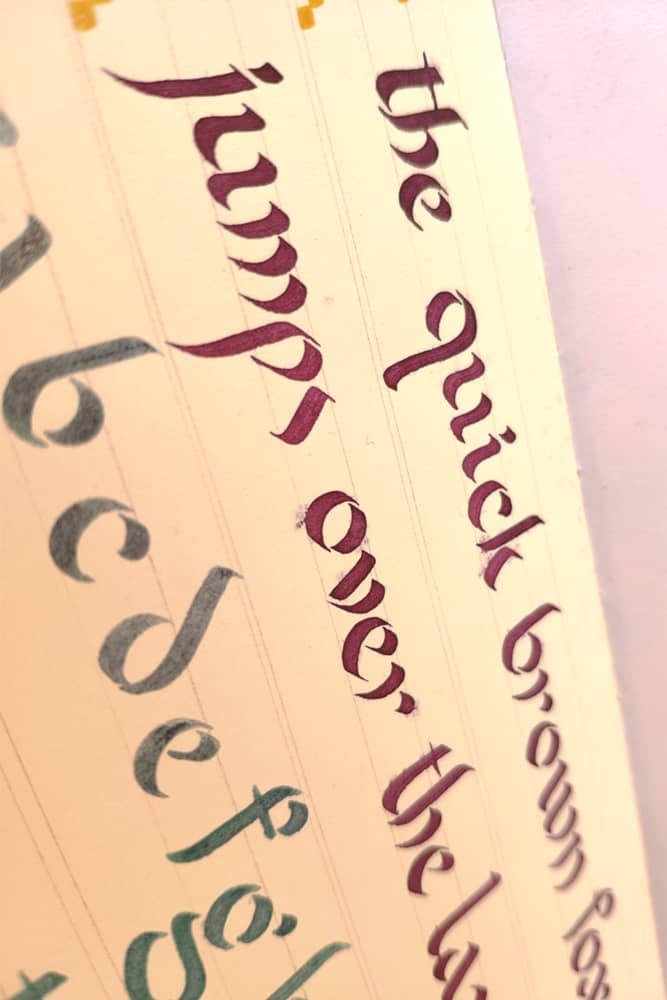 the quick brown fox
jumps over the
b c d e f g